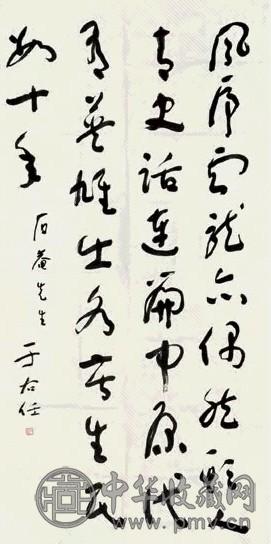 風虎雲龍亦偶然欺人
青史話連篇中原代
有英雄出各苦生民
數十年
石菴先生
于右任
中华收藏网
www.pmv.cn